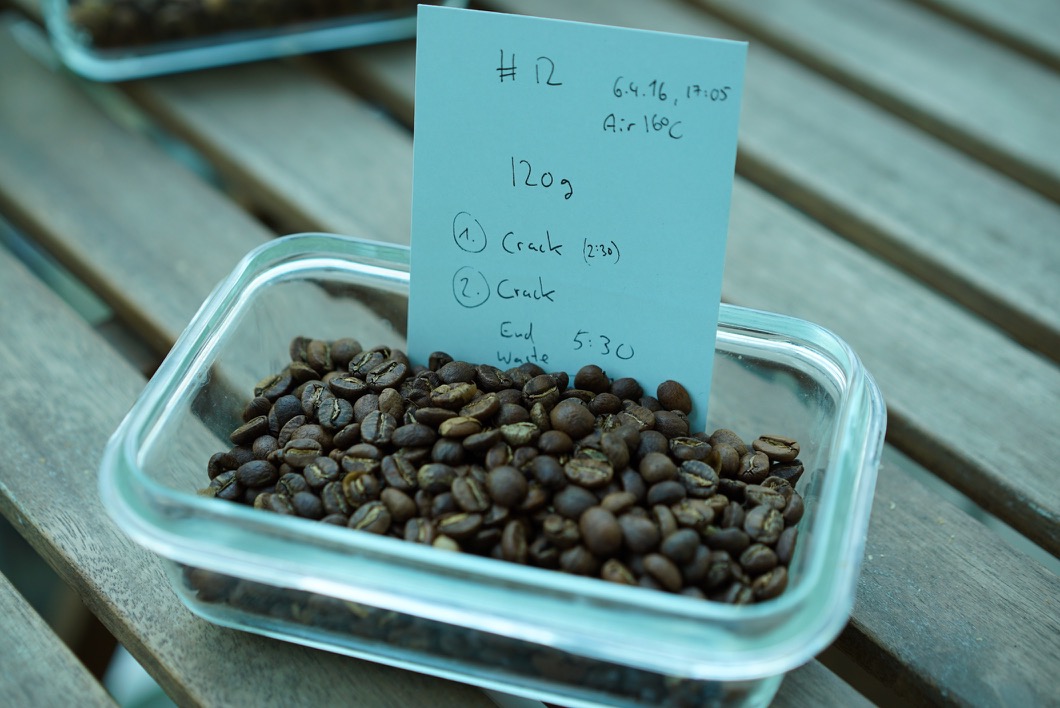 # 12
6.4.16, 17:05
Air 16°C
120g
1. Crack (2:30)
2. Crack
End 5:30
Waste